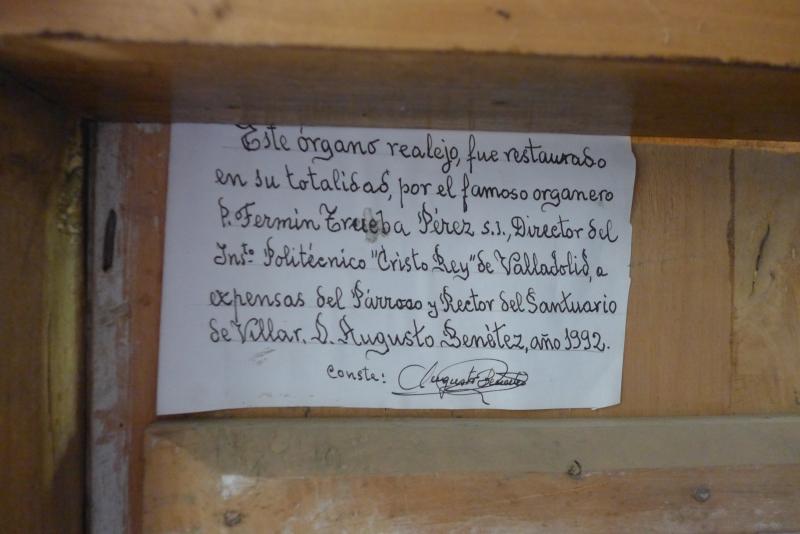 Este órgano realejo, fue restaurado
en su totalidad, por el famoso organero
P. Fermín Trueba Pérez s.j., Director del
Insto. Politécnico "Cristo Rey" de Valladolid, a
expensas del Párroco y Rector del Santuario
de Villar. D. Augusto Benótez, año 1992.
Conste: Augusto Benótez